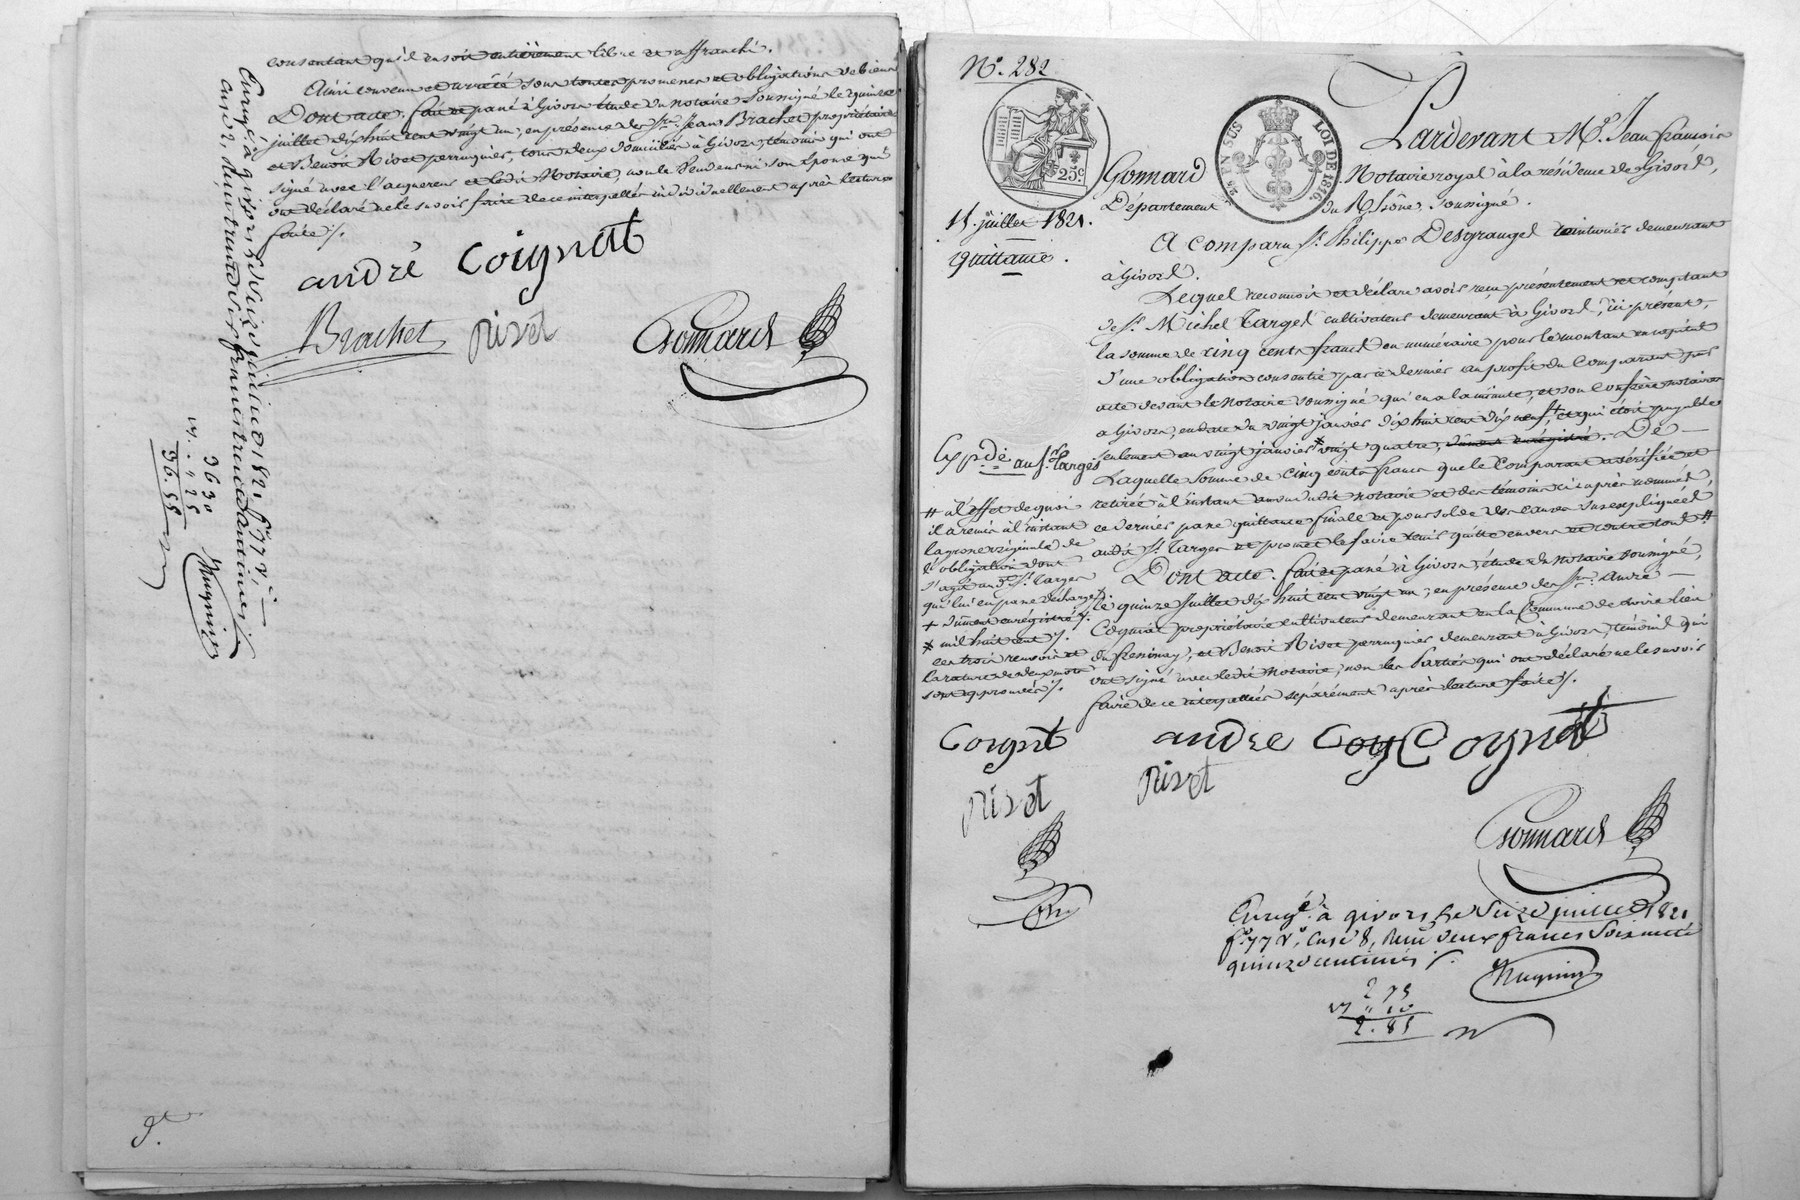 consentant qu'il en soit entièrement libre et affranchi.
Ainsi convenu et arrêté sous toutes promesses et obligations de biens
Dont acte. fait et passé à Givors étude du notaire soussigné le quinze
juillet dix huit cent vingt un; en présence des Srs. Jean Brachet propriétaire
et Benoit Rivet perruquier, tous deux domiciliés à Givors, témoins qui ont
signé avec l'acquereur et ledit Notaire, non le vendeur ni son épouse qui
ont déclaré ne le savoir faire de ce interpellés individuellement après lecture
faite ./.
andré Coignat
Brachet Rivet Gonnard
Enregé. à givors le seize juillet 1821, fo. 77 Vo. Ce.
case 2, reçu trente six francs trente centimes ./.
36 30
" 25
36. 55
Mugnier
No. 282
25c
EN SUS
LOI DE 1816
15. juillet 1821.
quittance.
Pardevant Me. Jean françois
Gonnard Notaire royal à la résidence de Givors,
Département du Rhône, soussigné.
A comparu Sr. Philippe Desgranges teinturier demeurant
à Givors.
Lequel reconnoit et déclare avoir reçu présentement et comptant
de Sr. Michel Targes cultivateur demeurant à Givors, ici présent,
la somme de cinq cents francs en numéraire pour le montant en capital
d'une obligation consentie par ce dernier au profit du Comparant par
acte devant le Notaire soussigné qui en a la minute, et son Confrère notaires
à Givors, en date du vingt janvier dix huit cent dix neuf, + et qui étoit payable
seulement au vingt janvier * vingt quatre, dûment enregistré. De
Laquelle somme de cinq cents francs que le Comparant a vérifiée et
retirée à l'instant au vu dudit notaire et des témoins ci après nommés,
ce dernier passe quittance finale et pour solde des causes susexpliquées
audit Sr. Targes et promet le faire tenir quitte envers et contre tous #
Dont acte. fait et passé à Givors, étude du notaire soussigné,
Le quinze Juillet dix huit cent vingt un; en présence des Srs. André
Coignat propriétaire cultivateur demeurant en la Commune de
, et Benoit Rivet perruquier demeurant à Givors, témoins qui
ont signé avec ledit Notaire, non les Parties qui ont déclaré ne le savoir
faire de ce interpellées séparément après lecture faite ./.
Expdié. au Sr. Targes
# à l'effet de quoi
il a remis à l'instant
la grosse originale de
l'obligation dont
s'agit audt. Sr. Targes
qui lui en passe décharge ./.
+ dûment enregistré ./.
* mil huit cent ./.
ces trois renvois et
la rature de deux mots
sont approuvés ./.
Coignt
Rivet
andre Coy Coignat
Rivet
Gonnard
Enregé. à givors le seize juillet 1821,
fo. 77 Vo, case 8, reçu deux francs soixante
quinze centimes ./.
2 75
" 10
2. 85
Mugnier